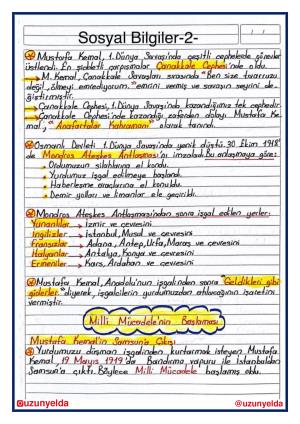 Sosyal Bilgiler-2-
Mustafa Kemal, 1. Dünya Savaşı'nda çeşitli cephelerde görevler
üstlendi. En şiddetli çarpışmalar Çanakkale Cephesi'nde oldu.
M. Kemal, Çanakkale Savaşları sırasında "Ben size taarruzu
değil, ölmeyi emrediyorum." emrini vermiş ve savaşın seyrini de-
ğiştirmiştir.
Çanakkale Cephesi, 1. Dünya Savaşı'nda kazandığımız tek cephedir.
Çanakkale Cephesi'nde kazandığı zaferden dolayı Mustafa Ke-
mal, "Anafartalar Kahramanı" olarak tanındı.
Osmanlı Devleti 1. Dünya Savaşı'nda yenik düştü. 30 Ekim 1918'
de Mondros Ateşkes Antlaşması'nı imzaladı. Bu anlaşmaya göre;
Ordumuzun silahlarına el kondu.
Yurdumuz işgal edilmeye başlandı.
Haberleşme araçlarına el konuldu.
Demir yolları ve limanlar ele geçirildi.
Mondros Ateşkes Antlaşmasından sonra işgal edilen yerler:
Yunanlılar → İzmir ve çevresini
İngilizler → İstanbul, Musul ve çevresini
Fransızlar → Adana, Antep, Urfa, Maraş ve çevresini
İtalyanlar → Antalya, Konya ve çevresini
Ermeniler → Kars, Ardahan ve çevresini
Mustafa Kemal, Anadolu'nun işgalinden sonra "Geldikleri gibi
giderler." diyerek, işgalcilerin yurdumuzdan atılacağının işaretini
vermiştir.
Milli Mücadele'nin Başlaması
Mustafa Kemal'in Samsun'a Çıkışı
Yurdumuzu düşman işgalinden kurtarmak isteyen Mustafa
Kemal, 19 Mayıs 1919'da Bandırma vapuru ile İstanbul'dan
Samsun'a çıktı. Böylece Milli Mücadele başlamış oldu.
@uzunyelda
@uzunyelda